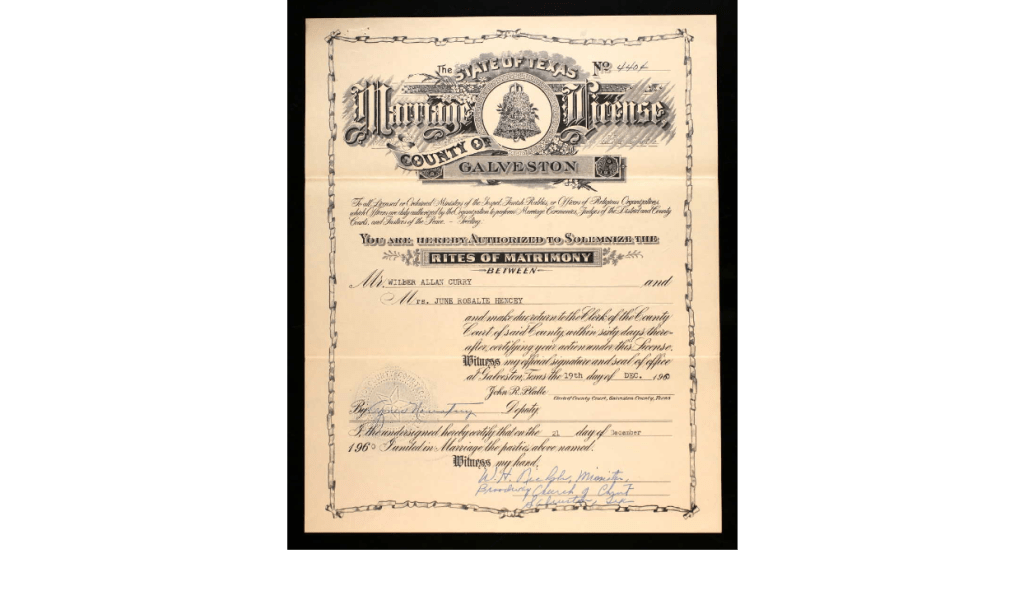 The STATE OF TEXAS No
Marriage License
COUNTY OF
GALVESTON
To all Licensed or Ordained Ministers of the Gospel, Jewish Rabbis, or Officers of Religious Organizations,
which Officers are duly authorized by the Organization to perform Marriage Ceremonies, Judges of the District and County
Courts, and Justices of the Peace. — Greeting
YOU ARE HEREBY AUTHORIZED TO SOLEMNIZE THE
RITES OF MATRIMONY
BETWEEN
Mr. WILBER ALLAN CURRY and
Mrs. JUNE ROSALIE HENCEY
and make due return to the Clerk of the County
Court of said County, within sixty days there-
after, certifying your action under this License.
Witness my official signature and seal of office
at Galveston, Texas the 19th day of DEC. 1960
John R. Platte
Clerk of County Court, Galveston County, Texas
By Deputy
I, the undersigned hereby certify that on the 21 day of December
1960 I united in Marriage the parties above named.
Witness my hand,
W.H. Minister,
Broadway Church of Christ
Galveston, Tex